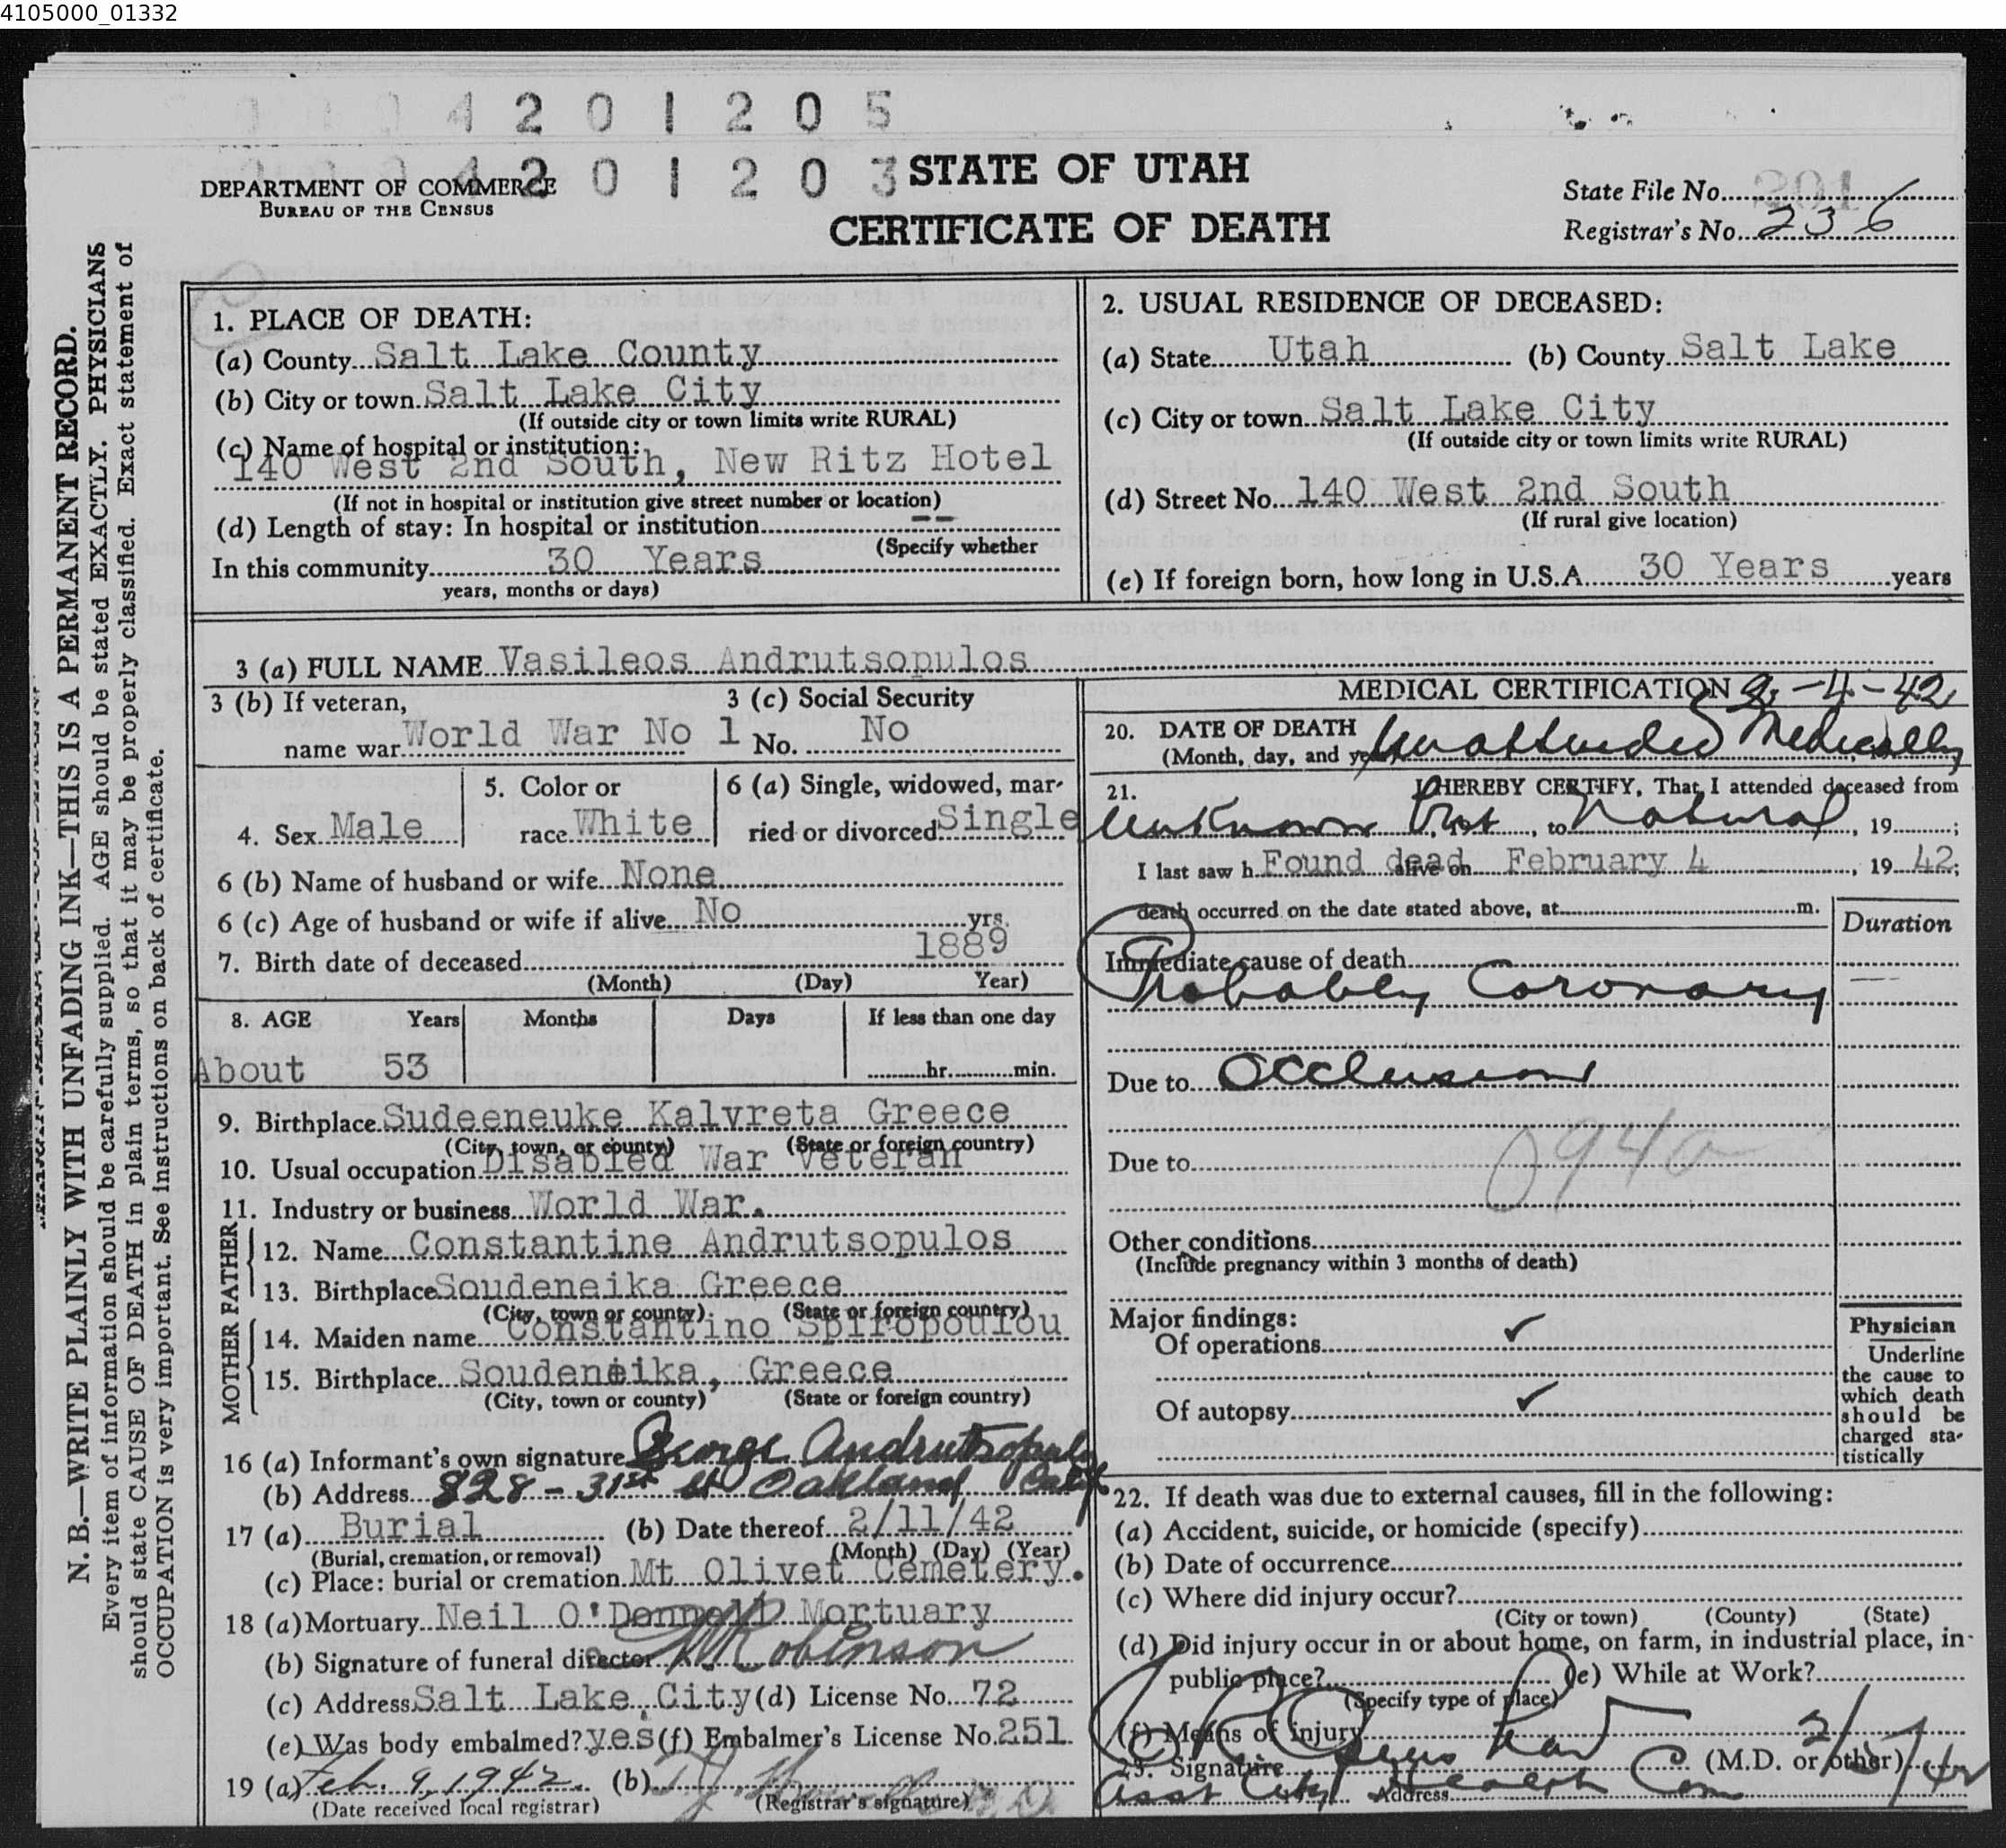 4105000_01332
4 2 0 1 2 0 5
4 2 0 1 2 0 3
DEPARTMENT OF COMMERCE
BUREAU OF THE CENSUS
STATE OF UTAH
CERTIFICATE OF DEATH
State File No.
Registrar's No. 236
N. B.—WRITE PLAINLY WITH UNFADING INK—THIS IS A PERMANENT RECORD.
Every item of information should be carefully supplied. AGE should be stated EXACTLY. PHYSICIANS
should state CAUSE OF DEATH in plain terms, so that it may be properly classified. Exact statement of
OCCUPATION is very important. See instructions on back of certificate.
1. PLACE OF DEATH:
(a) County Salt Lake County
(b) City or town Salt Lake City
(If outside city or town limits write RURAL)
(c) Name of hospital or institution:
140 West 2nd South, New Ritz Hotel
(If not in hospital or institution give street number or location)
(d) Length of stay: In hospital or institution --
(Specify whether
In this community 30 Years
years, months or days)
2. USUAL RESIDENCE OF DECEASED:
(a) State Utah (b) County Salt Lake
(c) City or town Salt Lake City
(If outside city or town limits write RURAL)
(d) Street No. 140 West 2nd South
(If rural give location)
(e) If foreign born, how long in U.S.A. 30 Years years
3 (a) FULL NAME Vasileos Andrutsopulos
3 (b) If veteran, 3 (c) Social Security
name war World War No 1 No. No
4. Sex Male
5. Color or
race White
6 (a) Single, widowed, mar-
ried or divorced Single
6 (b) Name of husband or wife None
6 (c) Age of husband or wife if alive No yrs.
7. Birth date of deceased 1889
(Month) (Day) Year)
8. AGE Years Months Days If less than one day
About 53 hr. min.
9. Birthplace Sudeeneuke Kalvreta Greece
(City, town, or county) (State or foreign country)
10. Usual occupation Disabled War Veteran
11. Industry or business World War.
FATHER
12. Name Constantine Andrutsopulos
13. Birthplace Soudeneika Greece
(City, town or county) (State or foreign country)
MOTHER
14. Maiden name Constantino Spiropoulou
15. Birthplace Soudeneika, Greece
(City, town or county) (State or foreign country)
16 (a) Informant's own signature George Andrutsopulos
(b) Address 828 - 31st St Oakland Calif
17 (a) Burial (b) Date thereof 2/11/42
(Burial, cremation, or removal) (Month) (Day) (Year)
(c) Place: burial or cremation Mt Olivet Cemetery.
18 (a) Mortuary Neil O'Donnell Mortuary
(b) Signature of funeral director Robinson
(c) Address Salt Lake City (d) License No. 72
(e) Was body embalmed? yes (f) Embalmer's License No. 251
19 (a) Feb. 9, 1942 (b)
(Date received local registrar) (Registrar's signature)
MEDICAL CERTIFICATION 2-4-42
20. DATE OF DEATH
(Month, day, and year) Unattended Medically
21. I HEREBY CERTIFY, That I attended deceased from
Unknown But , to Natural , 19 ;
I last saw h Found dead alive on February 4 , 19 42;
death occurred on the date stated above, at m.
Duration
Immediate cause of death
Probably Coronary
Due to Occlusion
094a
Due to
Other conditions
(Include pregnancy within 3 months of death)
Major findings:
Of operations ✓
Of autopsy ✓
Physician
Underline
the cause to
which death
should be
charged sta-
tistically
22. If death was due to external causes, fill in the following:
(a) Accident, suicide, or homicide (specify)
(b) Date of occurrence
(c) Where did injury occur?
(City or town) (County) (State)
(d) Did injury occur in or about home, on farm, in industrial place, in
public place? (e) While at Work?
(Specify type of place)
(f) Means of injury
23. Signature (M.D. or other)
Asst City Health Com Address